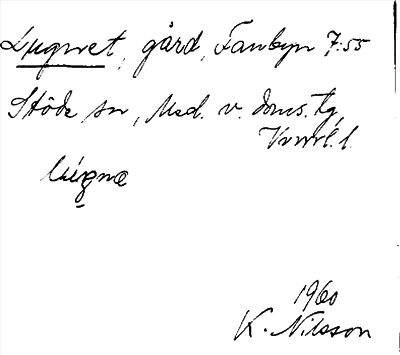 Lugnet, gård, Fanbyn 7:55
Stöde sn, Med. v. doms. tg,
Vnrrl. l.
lúgnæ
1960
K. Nilsson